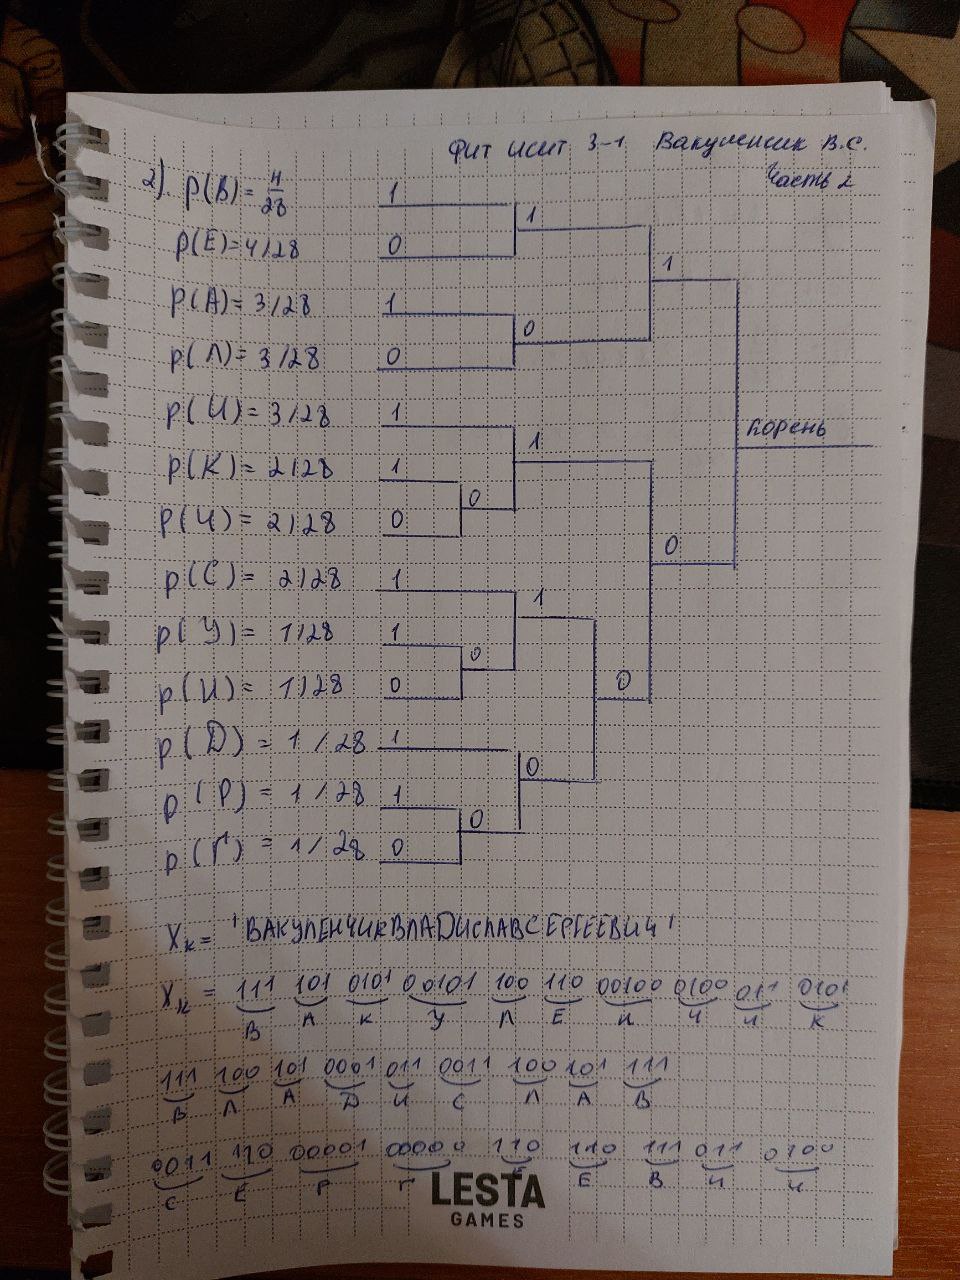 ФИТ ИСИТ 3-1 Вакуленчик В.С.
Часть 2
2). P(В) = 4/28 1 1
P(Е) = 4/28 0 1
P(А) = 3/28 1 0
P(Л) = 3/28 0
P(И) = 3/28 1 1 Корень
P(К) = 2/28 1 0
P(Ч) = 2/28 0 0
P(С) = 2/28 1 1
P(У) = 1/28 1 0
P(Н) = 1/28 0 0
P(Д) = 1/28 1 0
P(Р) = 1/28 1 0
P(Г) = 1/28 0
Xк = 'ВАКУЛЕНЧИКВЛАДИСЛАВСЕРГЕЕВИЧ'
Xк = 111 101 0101 00101 100 110 00100 0100 011 0101
В А К У Л Е Н Ч И К
111 100 101 0001 011 0011 100 101 111
В Л А Д И С Л А В
0011 110 00001 00000 110 110 111 011 0100
С Е Р Г Е Е В И Ч
LESTA
GAMES